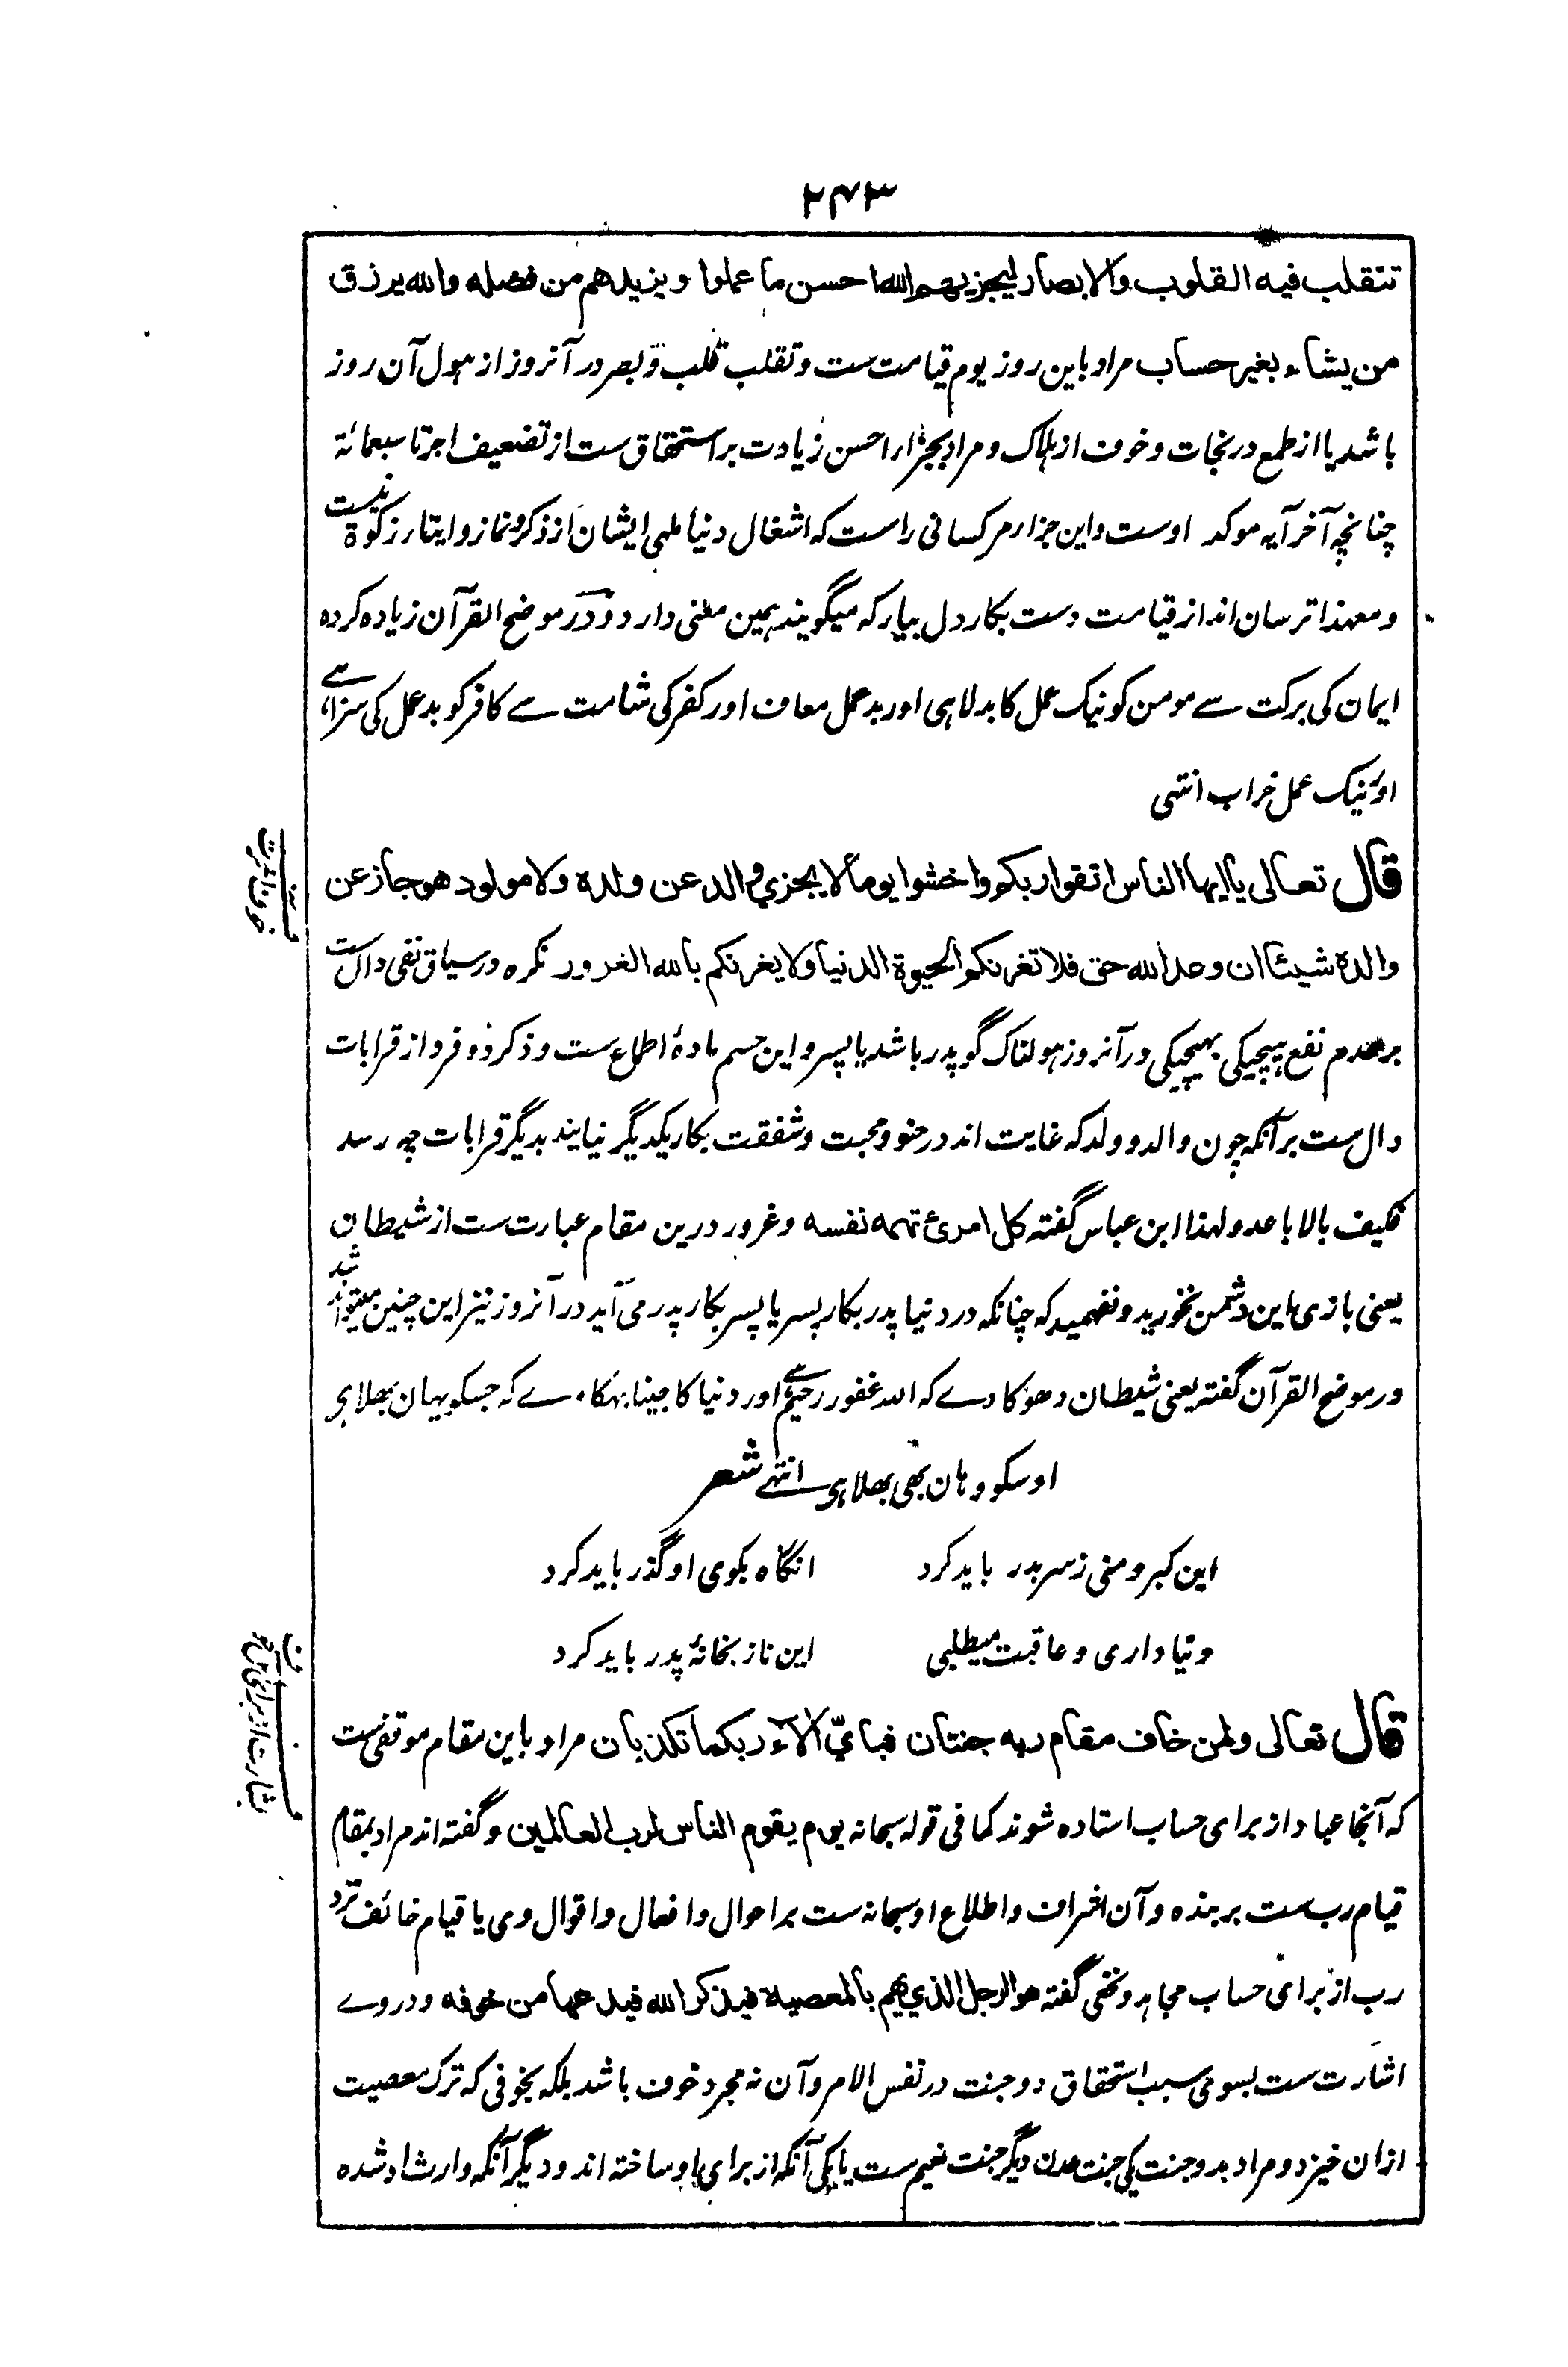 ۲۴۳
تتقلب فیه القلوب والابصار لیجزیهم الله احسن ما عملوا ویزیدهم من فضله والله یرزق
من یشاء بغیر حساب مراد باین روز یوم قیامت ست و تقلب قلب و بصر در آنروز از هول آن روز
باشد یا از طمع در نجات و خوف از هلاک و مراد بجزاء احسن زیادت بر استحقاق ست از تضعیف اجر تا سبعمائة
چنانچه آخر آیه موکد اوست و این جزا مر کسانی راست که اشغال دنیا ملهی ایشان از ذکر و نماز و ایتاء زکوة نیست
و معهذا ترسان اند از قیامت دست بکار دل بیار که میگویند همین معنی دارد و در موضح القرآن زیاده کرده
ایمان کی برکت سے مومن کو نیک عمل کا بدلا ہی اور بد عمل معاف اور کفر کی شامت سے کافر کو بد عمل کی سزا ہے
اور نیک عمل خراب انتہی
قال تعالی یا ایها الناس اتقوا ربکم واخشوا یوما لا یجزی والد عن ولده ولا مولود هو جاز عن
والده شیئا ان وعد الله حق فلا تغرنکم الحیوة الدنیا ولا یغرنکم بالله الغرور نکره در سیاق نفی دال ست
بر عدم نفع هیچیکی بهیچیکی در آنروز هولناک گو پدر باشد یا پسر و این حسم مادهٔ اطماع ست و ذکر دو فرد از قرابات
دال ست بر آنکه چون والد و ولد که غایت اند در حنو و محبت و شفقت بکار یکدیگر نیایند بدیگر قرابات چه رسد
فکیف بالاباعد و لهذا ابن عباس گفته کل امرئ تهمه نفسه و غرور درین مقام عبارت ست از شیطان
یعنی بازی این دشمن نخورید و نفهمید که چنانکه در دنیا پدر بکار پسر یا پسر بکار پدر می آید در آنروز نیز این چنین میتواند شد
در موضح القرآن گفته یعنی شیطان دھوکا دے کہ اللہ غفور رحیم ہے اور دنیا کا جینا بہکاوے کہ جسکو یہان بھلا ہی
اوسکو وہان بھی بھلا ہی انتہے شعر
این کبر و منی ز سر بدر باید کرد انگاه بکوی او گذر باید کرد
دنیا داری و عاقبت میطلبی این ناز بخانهٔ پدر باید کرد
قال تعالی ولمن خاف مقام ربه جنتان فبای آلاء ربکما تکذبان مراد باین مقام موقفی ست
که آنجا عباد از برای حساب استاده شوند کما فی قوله سبحانه یوم یقوم الناس لرب العالمین و گفته اند مراد بمقام
قیام رب ست بر بنده و آن اشراف و اطلاع او سبحانه ست بر احوال و افعال و اقوال وی یا قیام خائف نزد
رب از برای حساب مجاهد و نخعی گفته هو الرجل الذی یهم بالمعصیة فیذکر الله فیدعها من خوفه و در وے
اشارت ست بسوی سبب استحقاق دو جنت در نفس الامر و آن نه مجرد خوف باشد بلکه بخوفی که ترک معصیت
ازان خیزد و مراد بدو جنت یکی جنت عدن دیگر جنت نعیم ست یا یکی آنکه از برای او ساخته اند و دیگر آنکه وارث او شده